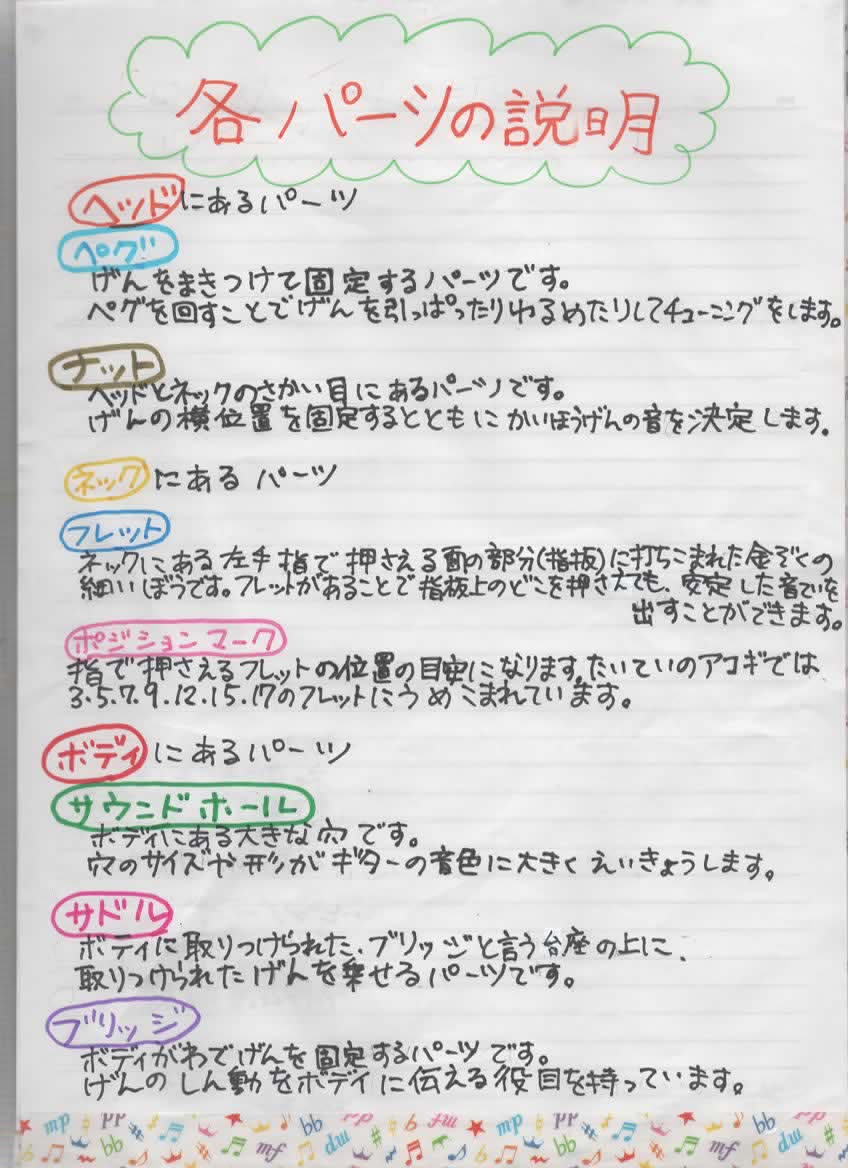 各パーツの説明
ヘッドにあるパーツ
ペグ
げんをまきつけて固定するパーツです。
ペグを回すことでげんを引っぱったりゆるめたりしてチューニングをします。
ナット
ヘッドとネックのさかい目にあるパーツです。
げんの横位置を固定するとともにかいほうげんの音を決定します。
ネックにあるパーツ
フレット
ネックにある左手指で押さえる面の部分(指板)に打ちこまれた金ぞくの
細いぼうです。フレットがあることで指板上のどこを押さえても、安定した音ていを
出すことができます。
ポジションマーク
指で押さえるフレットの位置の目安になります。たいていのアコギでは
3.5.7.9.12.15.17のフレットにうめこまれています。
ボディにあるパーツ
サウンドホール
ボディにある大きな穴です。
穴のサイズや形がギターの音色に大きくえいきょうします。
サドル
ボディに取りつけられた、ブリッジと言う台座の上に、
取りつけられたげんを乗せるパーツです。
ブリッジ
ボディがわでげんを固定するパーツです。
げんのしん動をボディに伝える役目を持っています。